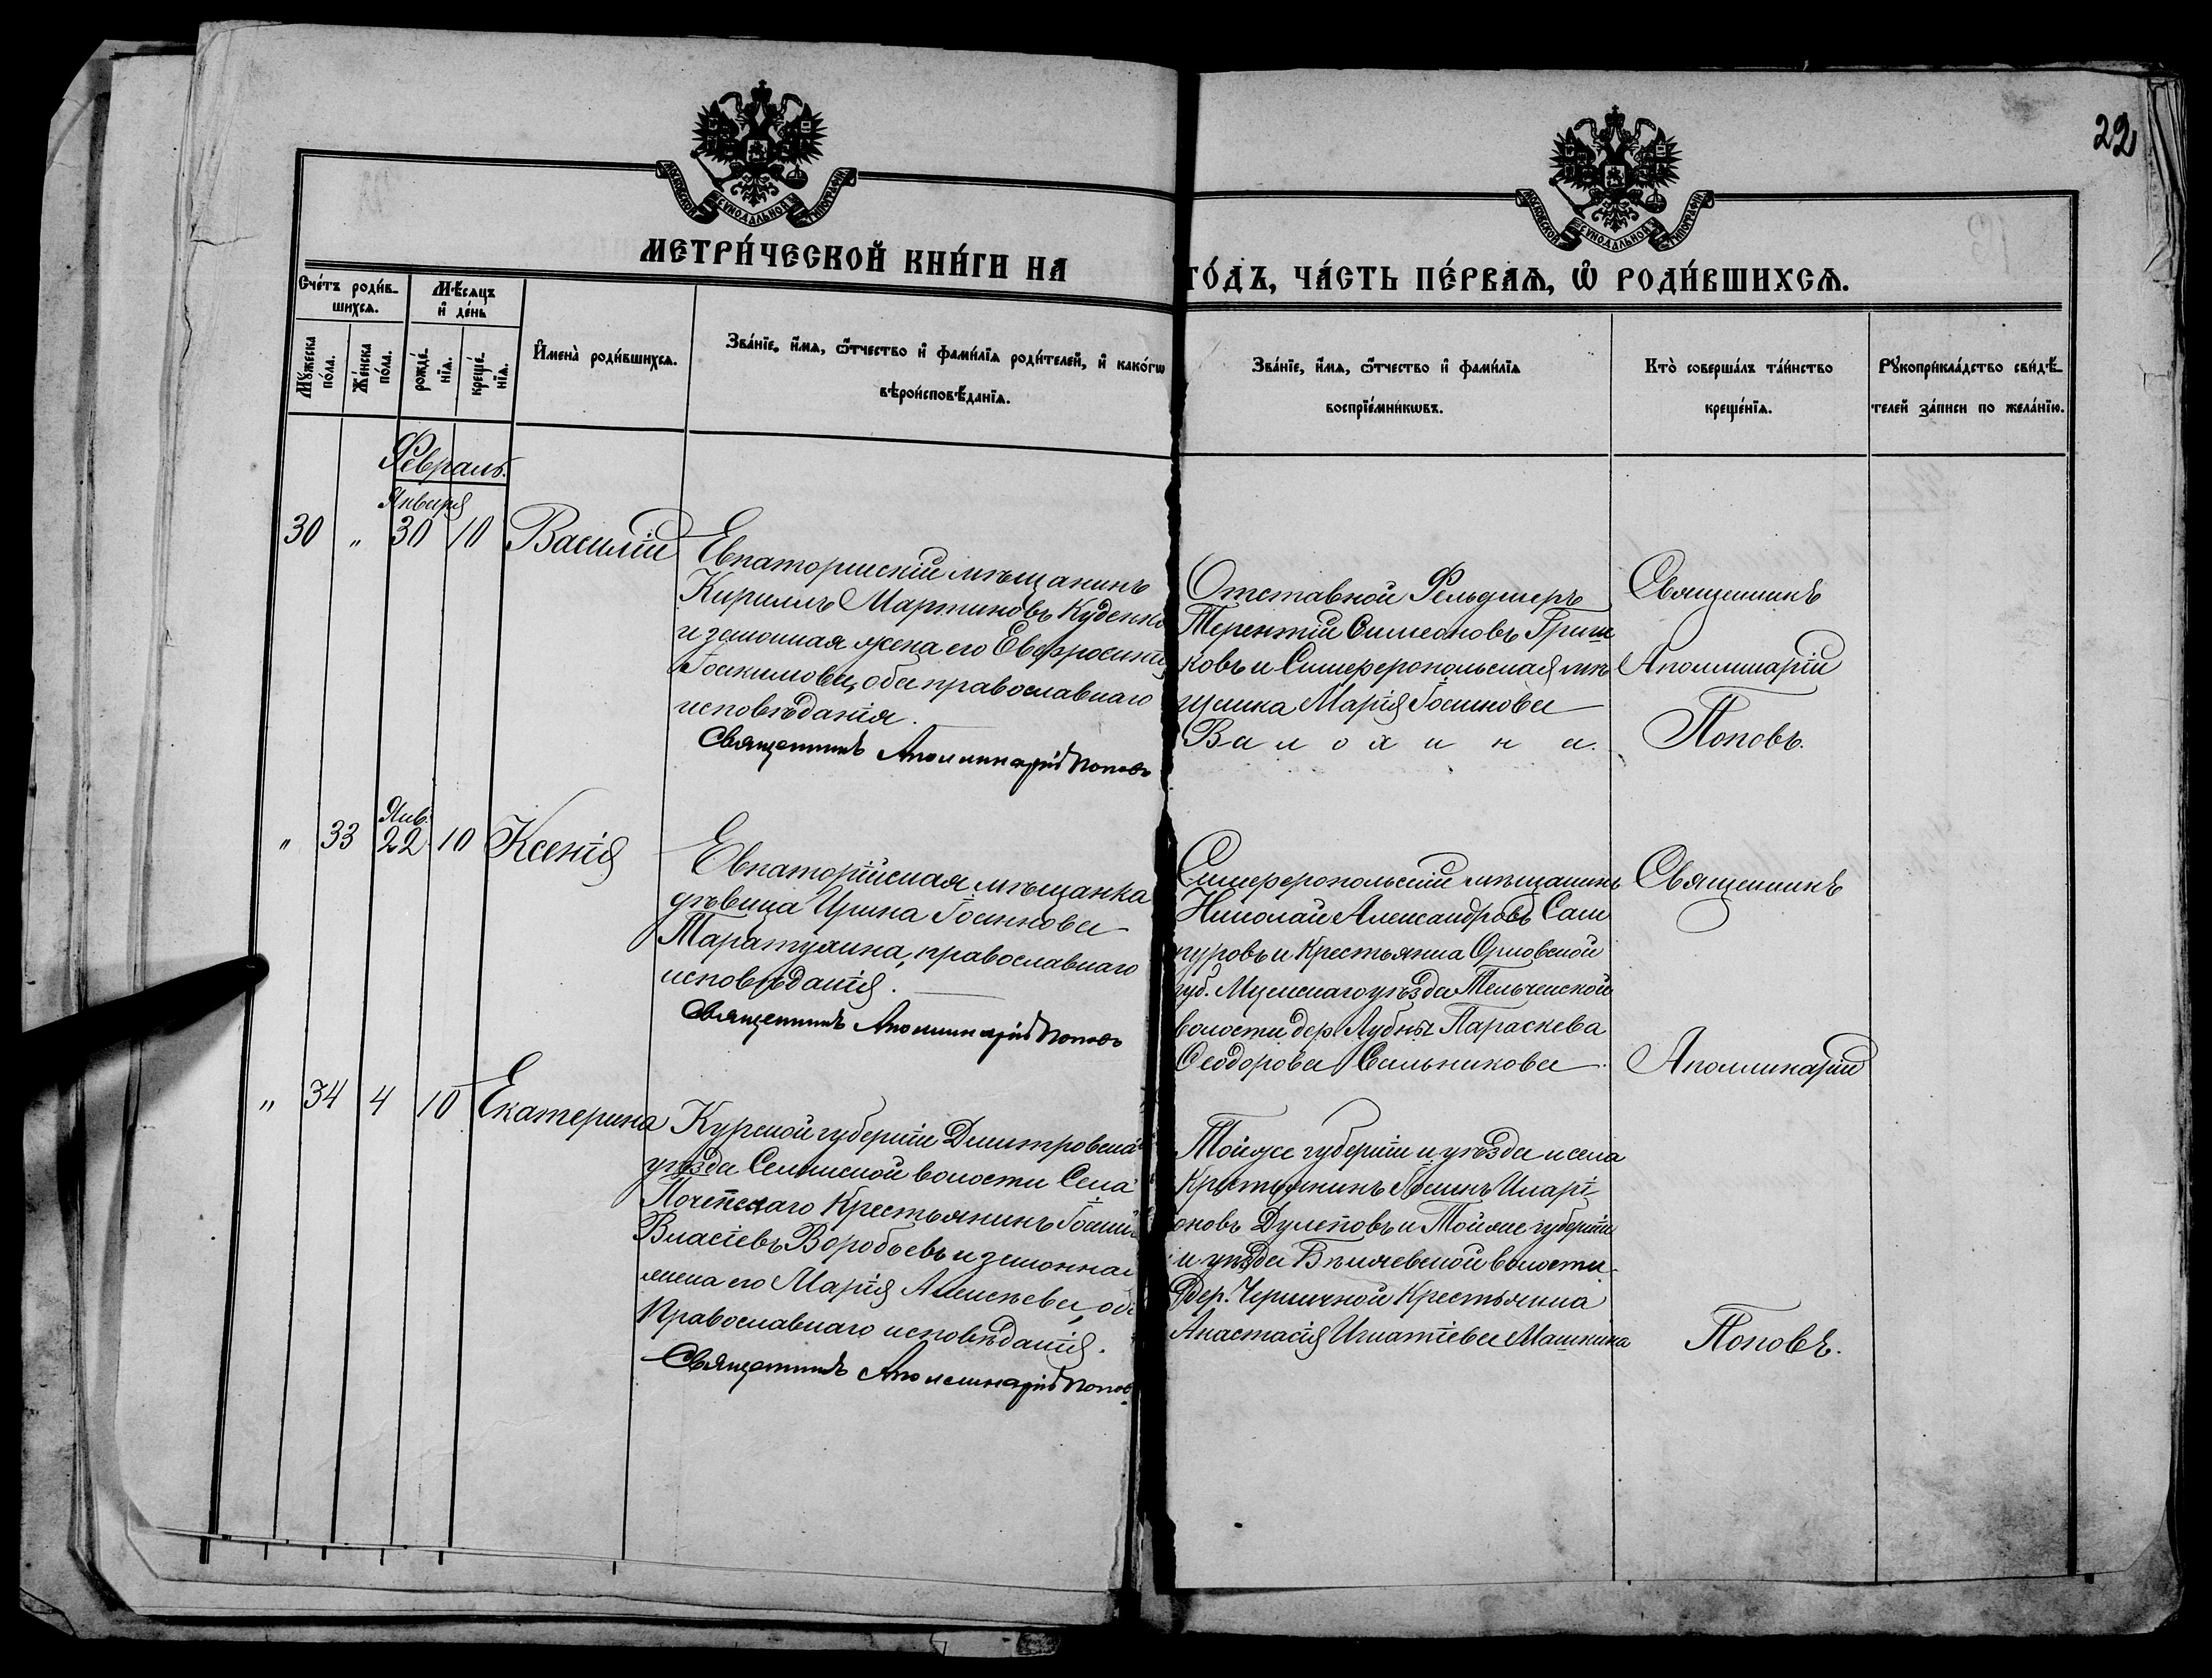 22
МОСКОВСКОЙ СУНОДАЛЬНОЙ ТИПОГРАФІИ
МОСКОВСКОЙ СУНОДАЛЬНОЙ ТИПОГРАФІИ
МЕТРИ́ЧЕСКОЙ КНИ́ГИ НА
ГО́ДЪ, ЧА́СТЬ ПЕ́РВАѦ, Ѡ҆ РОДИ́ВШИХСѦ.
Сче́тъ роди́в-
шихсѧ.
Мꙋ́жеска
по́ла.
Же́нска
по́ла.
Мѣ́сѧцъ
и҆ де́нь
рожде́-
нїѧ.
креще́-
нїѧ.
И҆мена̀ роди́вшихсѧ.
Зва́нїе, и҆́мѧ, ѻ҆́тчество и҆ фами́лїѧ роди́телей, и҆ како́гѡ
вѣроисповѣ́данїѧ.
Зва́нїе, и҆́мѧ, ѻ҆́тчество и҆ фами́лїѧ
воспрїе́мникѡвъ.
Кто̀ соверша́лъ та́инство
креще́нїѧ.
Рꙋкоприкла́дство свидѣ́-
телей за́писи по жела́нїю.
Февраль.
Января
30 " 30 10 Василій
Евпаторійскій мѣщанинъ
Кириллъ Мартиновъ Куденко
и законная жена его Евфросинія
Іоакимова, оба православнаго
исповѣданія.
Священникъ Аполлинарій Поповъ
Отставной Фельдшеръ
Терентій Симеоновъ Гриш
ковъ и Симферопольская мѣ
щанка Марія Іоаннова
Валохина.
Священникъ
Аполлинарій
Поповъ.
Янв.
" 33 22 10 Ксенія
Евпаторійская мѣщанка
дѣвица Ирина Іоаннова
Таратухина, православнаго
исповѣданія.
Священникъ Аполлинарій Поповъ
Симферопольскій мѣщанинъ
Николай Александровъ Сан
гуровъ и Крестьянка Орловской
губ. Мценскаго уѣзда Тельченской
волости дер. Лубны Параскева
Ѳеодорова Сальникова
Священникъ
Аполлинарій
" 34 4 10 Екатерина
Курской губерніи Дмитровска
уѣзда Селинской волости Села
Крестьянинъ
Власіевъ Воробьевъ и законная
жена его Марія Алексѣева, оба
Православнаго исповѣданія.
Священникъ Аполлинарій Поповъ
Тойже губерніи и уѣзда и села
Крестьянинъ Іоаннъ Иларі-
оновъ Дулеповъ и Тойже губерніи
и уѣзда волости
дер. Крестьянка
Анастасія Игнатіева Машкина
Поповъ.